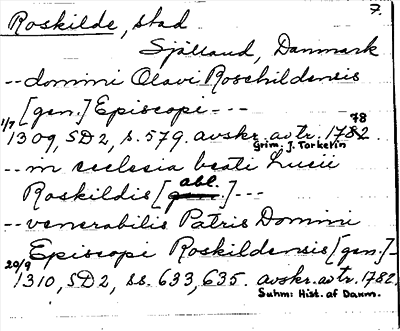 Roskilde, stad 7.
Själland, Danmark
-- domini Olavi Roschildensis
[gen.] Episcopi ---
1/7 1309, SD2, s. 579. avskr. av tr. 1782. 78
Grim. J. Torkelin
-- in ecclesia beati Lucii
abl.
Roskildis [gen.] ---
-- venerabilis Patris Domini
Episcopi Roskildensis [gen.] -
20/9 1310, SD2, ss. 633, 635. avskr. av tr. 1782.
Suhm: Hist. af Danm.